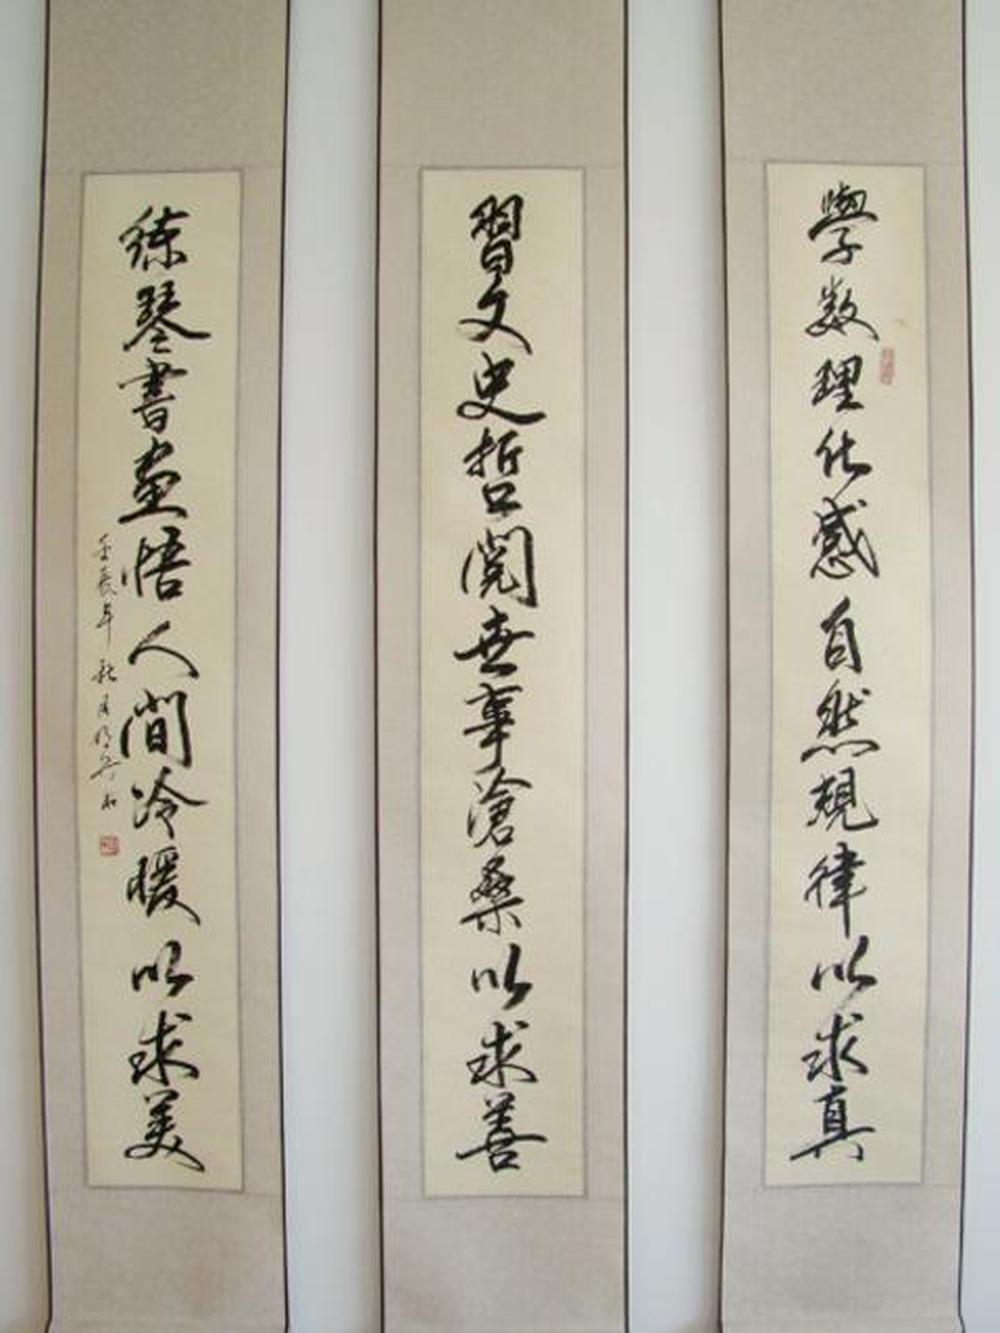 學数理化感自然規律以求真
習文史哲閱世事滄桑以求善
练琴書画悟人間冷暖以求美
壬辰年秋月